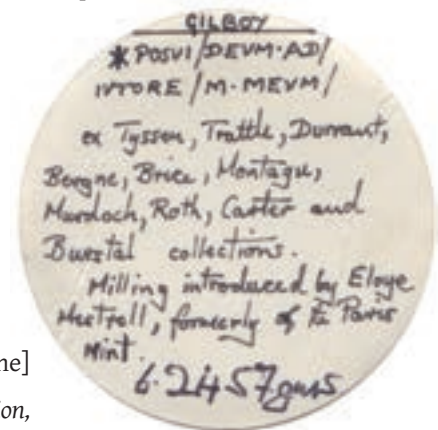 GILBOY
*POSVI/DEVM·AD/
IVTORE/M·MEVM/
ex Tyssen, Trattle, Durrant,
Bergne, Brice, Montagu,
Murdoch, Roth, Carter and
Burstal collections.
Milling introduced by Eloye
Mestrell, formerly of Paris
Mint.
6·2457gms
ne]
ion,